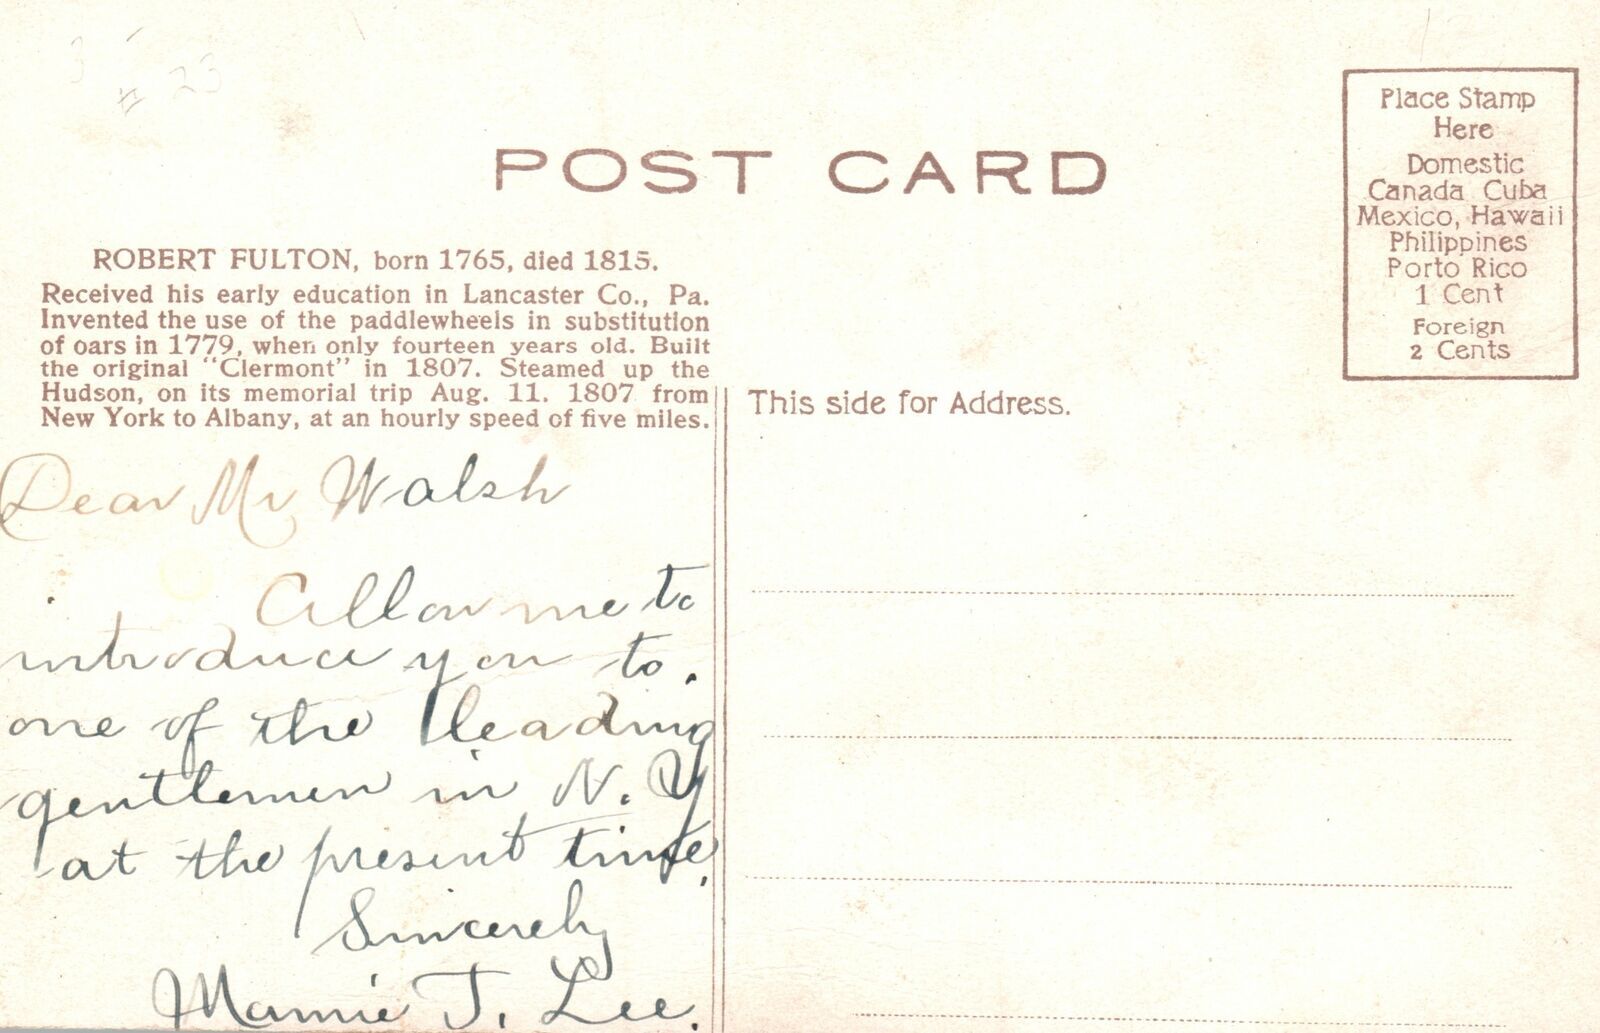 # 23
POST CARD
Place Stamp
Here
Domestic
Canada Cuba
Mexico, Hawaii
Philippines
Porto Rico
1 Cent
Foreign
2 Cents
ROBERT FULTON, born 1765, died 1815.
Received his early education in Lancaster Co., Pa.
Invented the use of the paddlewheels in substitution
of oars in 1779, when only fourteen years old. Built
the original "Clermont" in 1807. Steamed up the
Hudson, on its memorial trip Aug. 11. 1807 from
New York to Albany, at an hourly speed of five miles.
This side for Address.
Dear Mr Walsh
Allow me to
introduce you to.
one of the leading
gentlemen in N. Y
at the present time.
Sincerely
Mamie T. Lee.